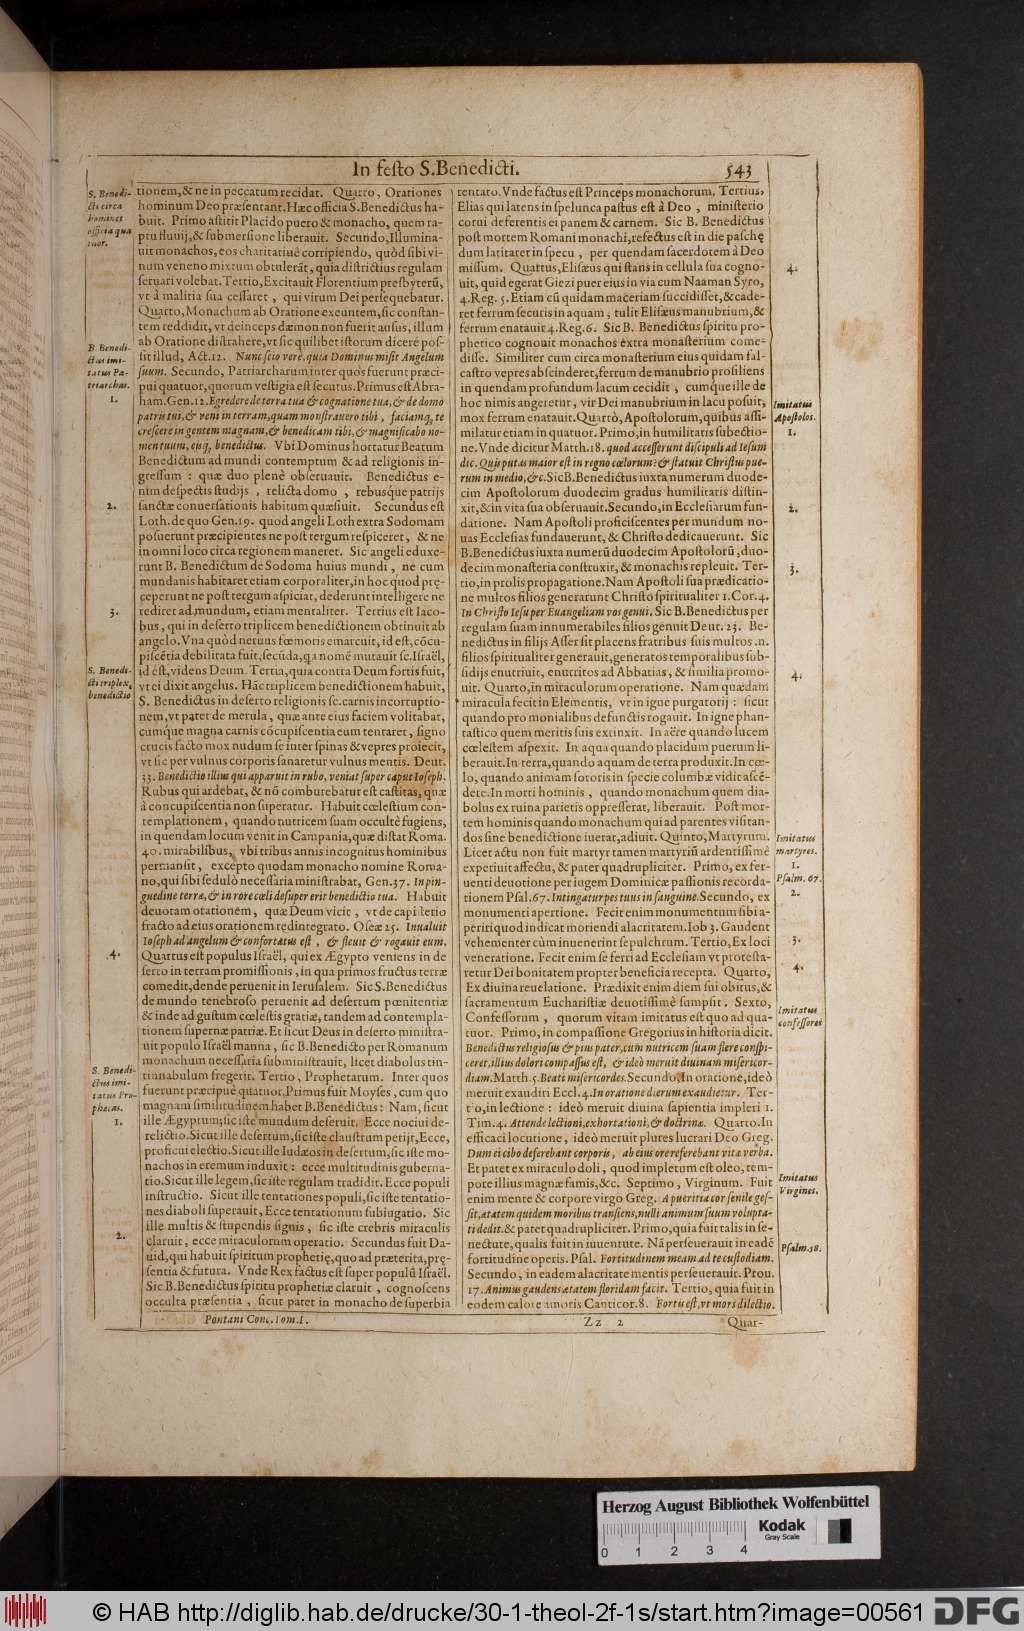 In festo S. Benedicti. 543
S. Benedi-
cti circa
homines
officia qua
tuor.
tionem, & ne in peccatum recidat. Quarto, Orationes
hominum Deo præsentant. Hæc officia S. Benedictus ha-
buit. Primo astitit Placido puero & monacho, quem ra-
ptu fluuij, & submersione liberauit. Secundo, Illumina-
uit monachos, eos charitatiuè corripiendo, quòd sibi vi-
num veneno mixtum obtulerāt, quia districtius regulam
seruari volebat. Tertio, Excitauit Florentium presbyterū,
vt à malitia sua cessaret, qui virum Dei persequebatur.
Quarto, Monachum ab Oratione exeuntem, sic constan-
tem reddidit, vt deinceps dæmon non fuerit ausus, illum
ab Oratione distrahere, vt sic quilibet istorum dicere pos-
sit illud, Act. 12. Nunc scio verè, quia Dominus misit Angelum
suum. Secundo, Patriarcharum inter quos fuerunt præci-
pui quatuor, quorum vestigia est secutus. Primus est Abra-
ham. Gen. 12. Egredere de terra tua & cognatione tua, & de domo
patris tui, & veni in terram, quam monstrauero tibi, faciamq́, te
crescere in gentem magnam, & benedicam tibi, & magnificabo no-
men tuum, erisq́, benedictus. Vbi Dominus hortatur Beatum
Benedictum ad mundi contemptum & ad religionis in-
gressum : quæ duo plenè obseruauit. Benedictus e-
nim despectis studijs, relicta domo, rebusque patrijs
sanctæ conuersationis habitum quæsiuit. Secundus est
Loth. de quo Gen. 19. quod angeli Loth extra Sodomam
posuerunt præcipientes ne post tergum respiceret, & ne
in omni loco circa regionem maneret. Sic angeli eduxe-
runt B. Benedictum de Sodoma huius mundi, ne cum
mundanis habitaret etiam corporaliter, in hoc quod prę-
ceperunt ne post tergum aspiciat, dederunt intelligere ne
rediret ad mundum, etiam mentaliter. Tertius est Iaco-
bus, qui in deserto triplicem benedictionem obtinuit ab
angelo. Vna quòd neruus fœmoris emarcuit, id est, cōcu-
piscētia debilitata fuit, secūda, qa nomē mutauit sc. Israël,
id est, videns Deum. Tertia, quia contra Deum fortis fuit,
vt ei dixit angelus. Hāc triplicem benedictionem habuit,
S. Benedictus in deserto religionis sc. carnis incorruptio-
nem, vt patet de merula, quæ ante eius faciem volitabat,
cumque magna carnis cōcupiscentia eum tentaret, signo
crucis facto mox nudum se inter spinas & vepres proiecit,
vt sic per vulnus corporis sanaretur vulnus mentis. Deut.
33. Benedictio illius qui apparuit in rubo, veniat super caput Ioseph.
Rubus qui ardebat, & nō comburebatur est castitas, quæ
à concupiscentia non superatur. Habuit cœlestium con-
templationem, quando nutricem suam occultè fugiens,
in quendam locum venit in Campania, quæ distat Roma.
40. mirabilibus, vbi tribus annis incognitus hominibus
permansit, excepto quodam monacho nomine Roma-
no, qui sibi sedulò necessaria ministrabat, Gen. 37. In pin-
guedine terræ, & in rore cœli desuper erit benedictio tua. Habuit
deuotam orationem, quæ Deum vicit, vt de capisterio
fracto ad eius orationem redintegrato. Oseæ 25. Inualuit
Ioseph ad angelum & confortatus est, & fleuit & rogauit eum.
Quartus est populus Israël, qui ex Ægypto veniens in de
serto in terram promissionis, in qua primos fructus terræ
comedit, dende peruenit in Ierusalem. Sic S. Benedictus
de mundo tenebroso peruenit ad desertum pœnitentiæ
& inde ad gustum cœlestis gratiæ, tandem ad contempla-
tionem supernæ patriæ. Et sicut Deus in deserto ministra-
uit populo Israël manna, sic B. Benedicto per Romanum
monachum necessaria subministrauit, licet diabolus tin-
tinnabulum fregerit. Tertio, Prophetarum. Inter quos
fuerunt præcipuè quatuor. Primus fuit Moyses, cum quo
magnam similitudinem habet B. Benedictus : Nam, sicut
ille Ægyptum; sic iste mundum deseruit. Ecce nociui de-
relictio. Sicut ille desertum, sic iste claustrum petijt, Ecce,
proficui electio. Sicut ille Iudæos in desertum, sic iste mo-
nachos in eremum induxit : ecce multitudinis guberna-
tio. Sicut ille legem, sic iste regulam tradidit. Ecce populi
instructio. Sicut ille tentationes populi, sic iste tentatio-
nes diaboli superauit, Ecce tentationum subiugatio. Sic
ille multis & stupendis signis, sic iste crebris miraculis
claruit, ecce miraculorum operatio. Secundus fuit Da-
uid, qui habuit spiritum prophetię, quo ad præterita, prę-
sentia & futura. Vnde Rex factus est super populū Israël.
Sic B. Benedictus spiritu prophetiæ claruit, cognoscens
occulta præsentia, sicut patet in monacho de superbia
B. Benedi-
ctus imi-
tatus Pa-
triarchas.
1.
2.
3.
S. Benedi-
cti triplex,
benedictio
4.
S. Benedi-
ctus imi-
tatus Pro-
phetas.
1.
2.
tentato. Vnde factus est Princeps monachorum. Tertius,
Elias qui latens in spelunca pastus est à Deo, ministerio
corui deferentis ei panem & carnem. Sic B. Benedictus
post mortem Romani monachi, refectus est in die paschę
dum latitaret in specu, per quendam sacerdotem à Deo
missum. Quartus, Elisæus qui stans in cellula sua cogno-
uit, quid egerat Giezi puer eius in via cum Naaman Syro,
4. Reg. 5. Etiam cū quidam maceriam succidisset, & cade-
ret ferrum securis in aquam; tulit Elisæus manubrium, &
ferrum enatauit 4. Reg. 6. Sic B. Benedictus spiritu pro-
phetico cognouit monachos extra monasterium come-
disse. Similiter cum circa monasterium eius quidam fal-
castro vepres abscinderet, ferrum de manubrio prosiliens
in quendam profundum lacum cecidit, cumque ille de
hoc nimis angeretur, vir Dei manubrium in lacu posuit,
mox ferrum enatauit. Quartò, Apostolorum, quibus assi-
milatur etiam in quatuor. Primo, in humilitatis subectio-
ne. Vnde dicitur Matth. 18. quod accesserunt discipuli ad Iesum
dic. Quis putas maior est in regno cœlorum: & statuit Christus pue-
rum in medio, &c. Sic B. Benedictus iuxta numerum duode-
cim Apostolorum duodecim gradus humilitatis distin-
xit, & in vita sua obseruauit. Secundo, in Ecclesiarum fun-
datione. Nam Apostoli proficiscentes per mundum no-
uas Ecclesias fundauerunt, & Christo dedicauerunt. Sic
B. Benedictus iuxta numerū duodecim Apostolorū, duo-
decim monasteria construxit, & monachis repleuit. Ter-
tio, in prolis propagatione. Nam Apostoli sua prædicatio-
ne multos filios generarunt Christo spiritualiter 1. Cor. 4.
In Christo Iesu per Euangeliam vos genui. Sic B. Benedictus per
regulam suam innumerabiles filios genuit Deut. 23. Be-
nedictus in filijs Asser sit placens fratribus suis multos .n.
filios spiritualiter generauit, generatos temporalibus sub-
sidijs enutriuit, enutritos ad Abbatias, & similia promo-
uit. Quarto, in miraculorum operatione. Nam quædam
miracula fecit in Elementis, vt in igne purgatorij : sicut
quando pro monialibus defunctis rogauit. In igne phan-
tastico quem meritis suis extinxit. In aëre quando lucem
cœlestem aspexit. In aqua quando placidum puerum li-
berauit. In terra, quando aquam de terra produxit. In cœ-
lo, quando animam sororis in specie columbæ vidit ascē-
dere. In morti hominis, quando monachum quem dia-
bolus ex ruina parietis oppresserat, liberauit. Post mor-
tem hominis quando monachum qui ad parentes visitan-
dos sine benedictione iuerat, adiuit. Quinto, Martyrum.
Licet actu non fuit martyr tamen martyriū ardentissimè
expetiuit affectu, & pater quadrupliciter. Primo, ex fer-
uenti deuotione per iugem Dominicæ passionis recorda-
tionem Psal. 67. Intingatur pes tuus in sanguine. Secundo, ex
monumenti apertione. Fecit enim monumentum sibi a-
periri quod indicat moriendi alacritatem. Iob 3. Gaudent
vehementer cùm inuenerint sepulchrum. Tertio, Ex loci
veneratione. Fecit enim se ferri ad Ecclesiam vt protesta-
retur Dei bonitatem propter beneficia recepta. Quarto,
Ex diuina reuelatione. Prædixit enim diem sui obitus, &
sacramentum Eucharistiæ deuotissimè sumpsit. Sexto,
Confessorum, quorum vitam imitatus est quo ad qua-
tuor. Primo, in compassione Gregorius in historia dicit.
Benedictus religiosus & pius pater, cum nutricem suam flere conspi-
ceret, illius dolori compassus est, & ideò meruit diuinam misericor-
diam. Matth. 5. Beati misericordes. Secundo, In oratione, ideò
meruit exaudiri Eccl. 4. In oratione dierum exaudietur. Ter-
tio, in lectione : ideò meruit diuina sapientia impleri 1.
Tim. 4. Attende lectioni, exhortationi, & doctrinæ. Quarto. In
efficaci locutione, ideò meruit plures lucrari Deo Greg.
Dum ei cibo deferebant corporis, ab eius ore referebant vitæ verba.
Et patet ex miraculo doli, quod impletum est oleo, tem-
pore illius magnæ famis, &c. Septimo, Virginum. Fuit
enim mente & corpore virgo Greg. A pueritia cor senile ges-
sit, ætatem quidem moribus transiens, nulli animum suum volupta-
ti dedit. & patet quadrupliciter. Primo, quia fuit talis in se-
nectute, qualis fuit in iuuentute. Nā perseuerauit in eadē
fortitudine operis. Psal. Fortitudinem meam ad te custodiam.
Secundo, in eadem alacritate mentis perseuerauit. Prou.
17. Animus gaudens ætatem floridam facit. Tertio, quia fuit in
eodem calore amoris Canticor. 8. Fortis est, vt mors dilectio.
4.
Imitatus
Apostolos.
1.
2.
3.
4.
Imitatus
martyres.
1.
Psalm. 67.
2.
3.
4.
Imitatus
confessores
Imitatus
Virgines.
Psalm. 58.
Pontani Conc. Tom. I. Zz 2 Quar-
Herzog August Bibliothek Wolfenbüttel
Kodak
Gray Scale
0 1 2 3 4
© HAB http://diglib.hab.de/drucke/30-1-theol-2f-1s/start.htm?image=00561 DFG